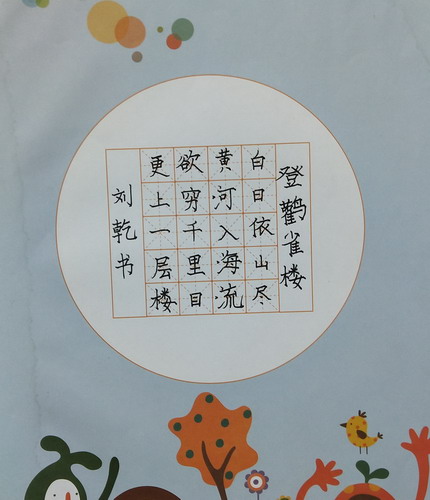 登鹳雀楼
白日依山尽
黄河入海流
欲穷千里目
更上一层楼
刘乾书